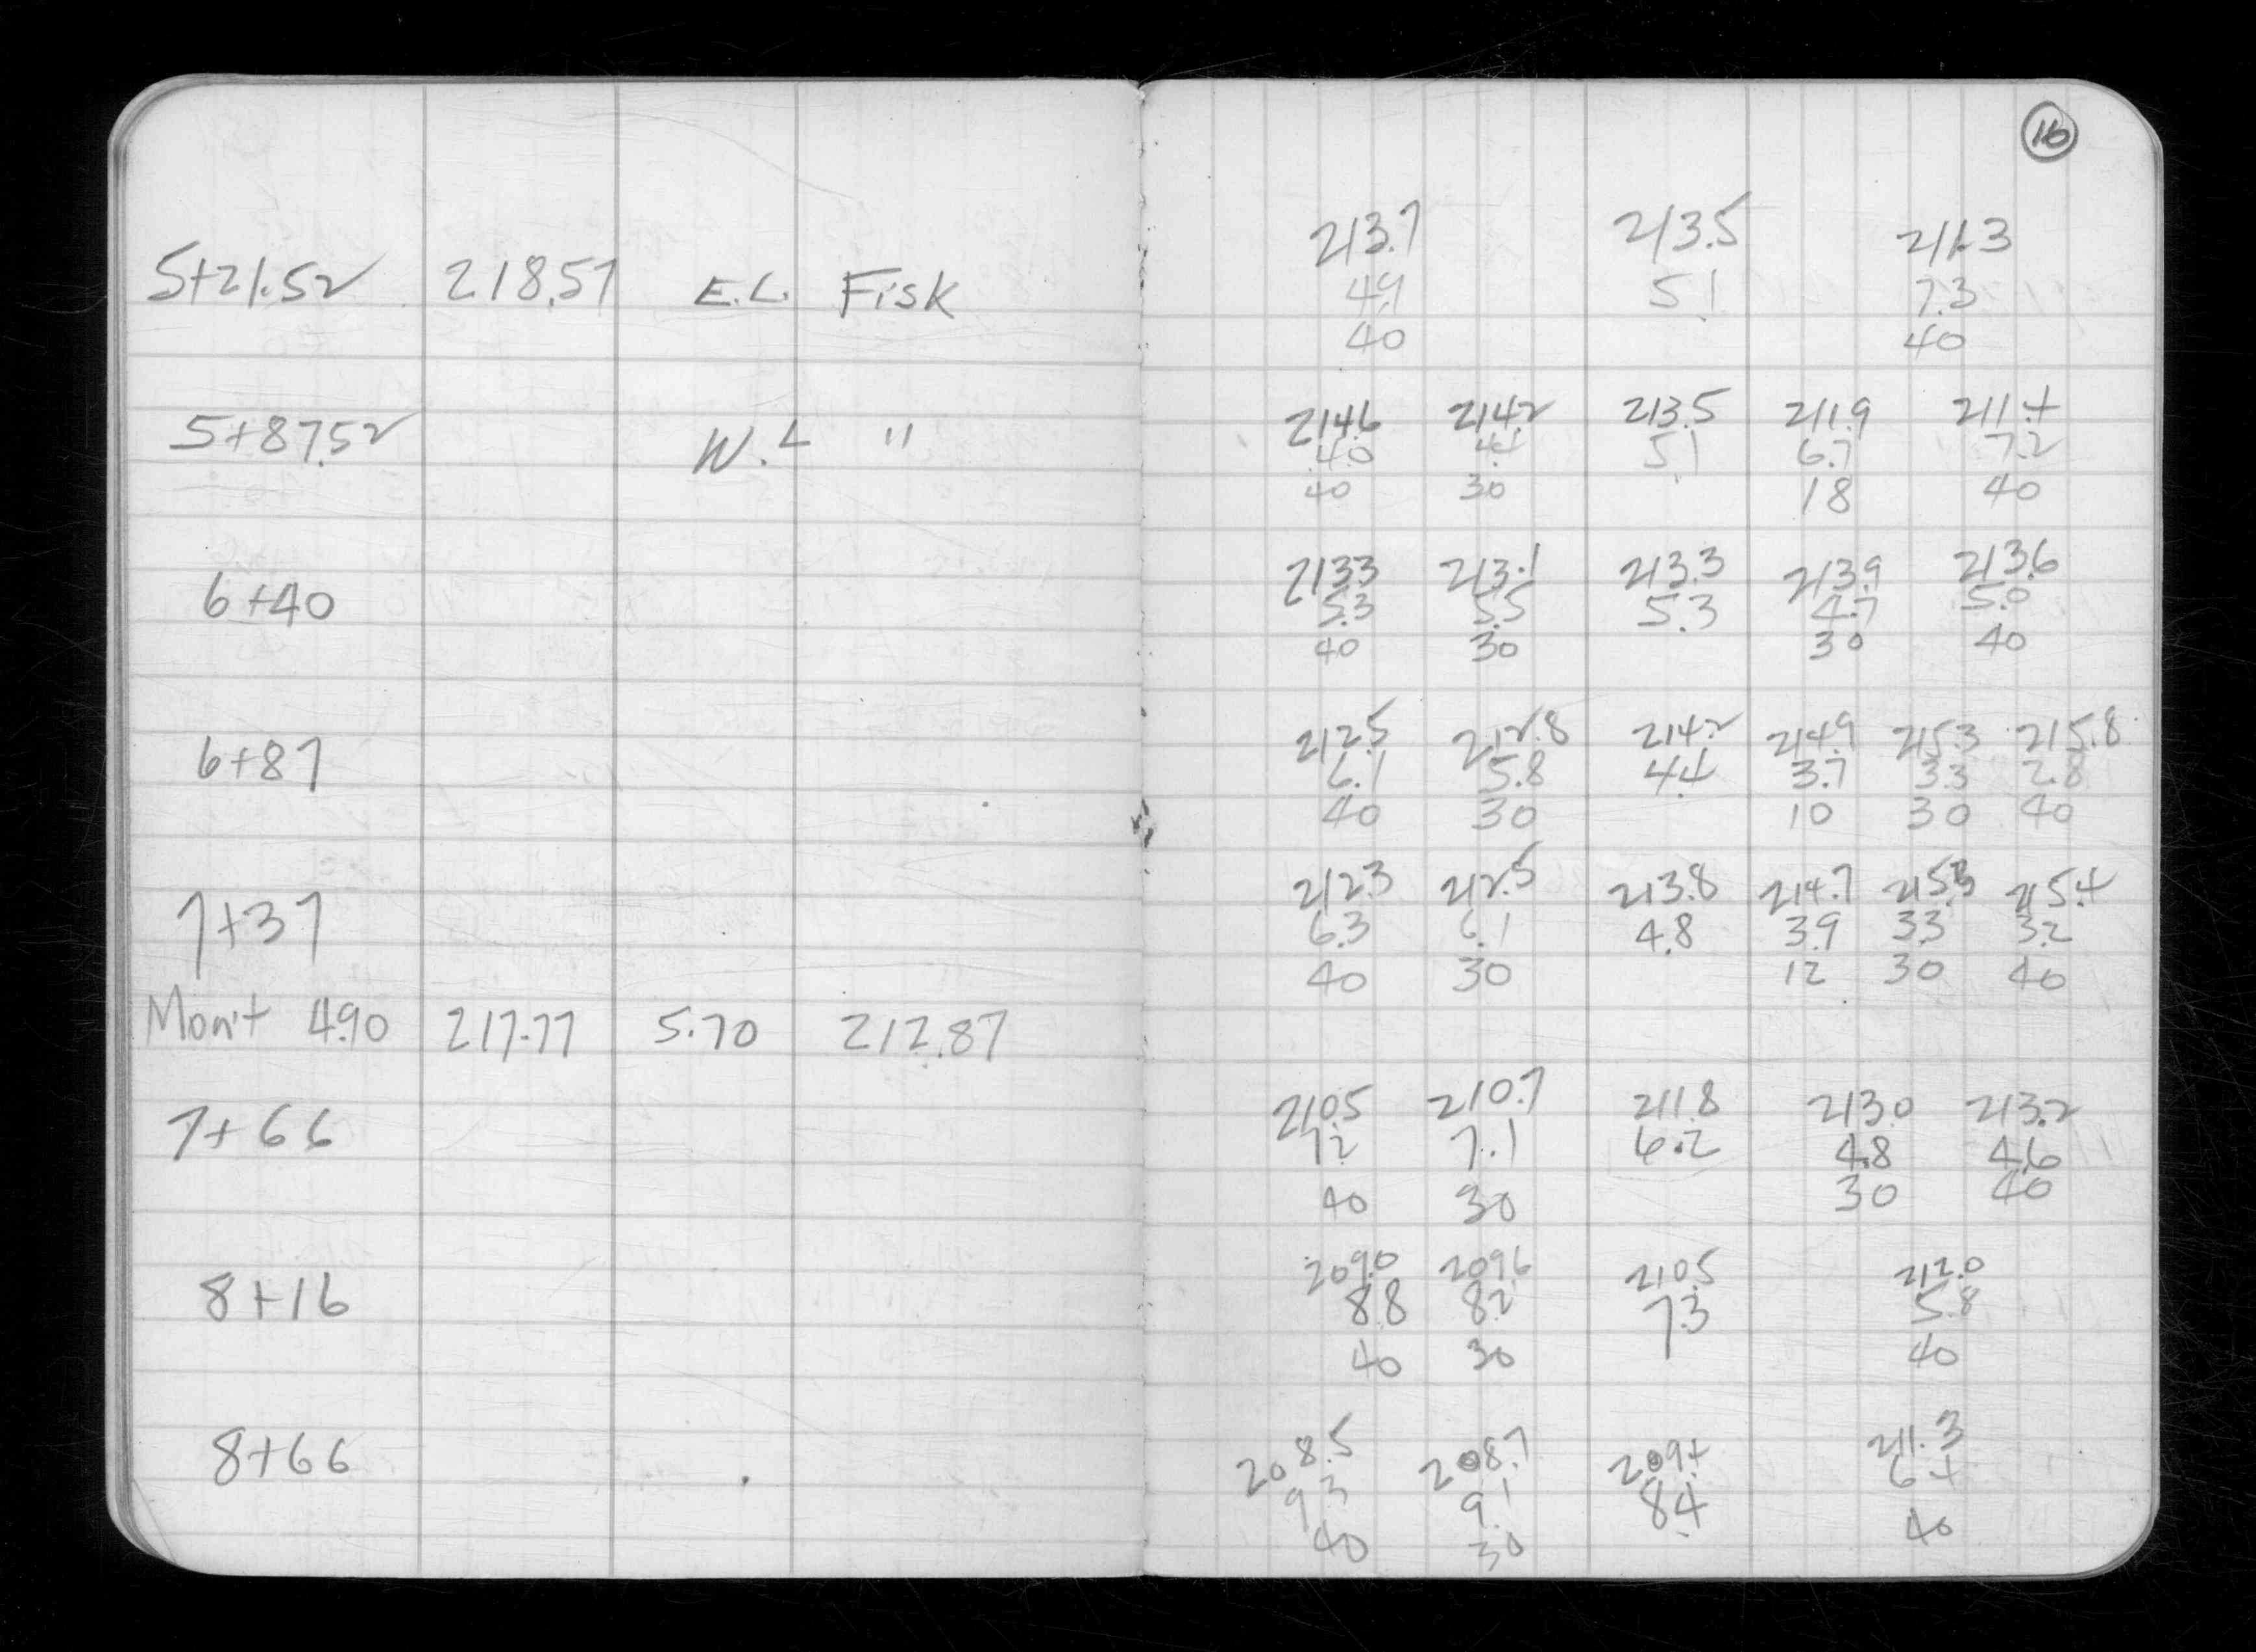 16
213.7 213.5 211.3
5+21.52 218.57 E.L. Fisk 4.9 5.1 7.3
40 40
214.6 214.2 213.5 211.9 211.4
5+87.52 W.L " 4.0 4.4 5.1 6.7 7.2
40 30 18 40
213.3 213.1 213.3 213.9 213.6
6+40 5.3 5.5 5.3 4.7 5.0
40 30 30 40
212.5 212.8 214.2 214.9 215.3 215.8
6+87 6.1 5.8 4.4 3.7 3.3 2.8
40 30 10 30 40
212.3 212.5 213.8 214.7 215.3 215.4
7+37 6.3 6.1 4.8 3.9 3.3 3.2
40 30 12 30 40
Mon't 4.90 217.77 5.70 212.87
210.5 210.7 211.8 213.0 213.2
7+66 7.2 7.1 6.2 4.8 4.6
40 30 30 40
209.0 209.6 210.5 212.0
8+16 8.8 8.2 7.3 5.8
40 30 40
208.5 208.7 209.4 211.3
8+66 9.3 9.1 8.4 6.4
40 30 40